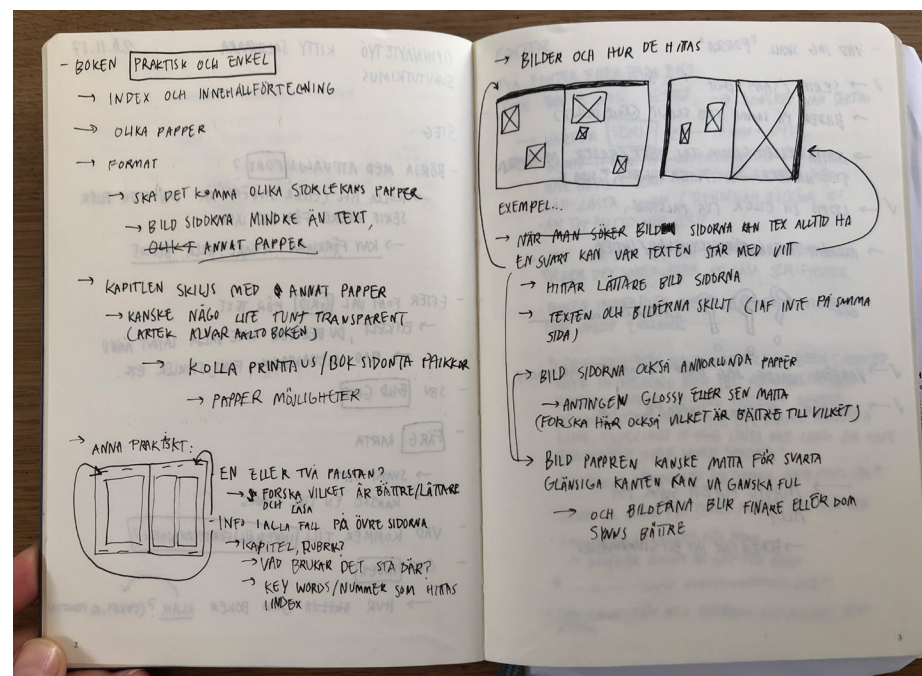 - BOKEN PRAKTISK OCH ENKEL
→ INDEX OCH INNEHÅLLFÖRTECNING
→ OLIKA PAPPER
→ FORMAT
→ SKA DET KOMMA OLIKA STORLEKANS PAPPER
→ BILD SIDORNA MINDRE ÄN TEXT,
OLIKT ANNAT PAPPER
→ KAPITLEN SKILJS MED ANNAT PAPPER
→ KANSKE NÅGO LITE TUNT TRANSPARENT
(ARTEK ALVAR AALTO BOKEN)
→ KOLLA PRINTTAUS/BOK SIDONTA PAIKKAR
→ PAPPER MÖJLIGHETER
→ ANNA PRAKTISKT:
EN ELLER TVÅ PALSTAN?
→ FORSKA VILKET ÄR BÄTTRE/LÄTTARE
OCH LÄSA
- INFO I ALLA FALL PÅ ÖVRE SIDORNA
→ KAPITEL, RUBRIK?
→ VAD BRUKAR DET STÅ DÄR?
→ KEY WORDS/NUMMER SOM HITTAS
I INDEX
2
→ BILDER OCH HUR DE HITTAS
EXEMPEL...
→ NÄR MAN SÖKER BILD SIDORNA KAN TEX ALLTID HA
EN SVART KAN VAR TEXTEN STÅR MED VITT
→ HITTAR LÄTTARE BILD SIDORNA
→ TEXTEN OCH BILDERNA SKILIT (IAF INTE PÅ SAMMA
SIDA)
→ BILD SIDORNA OCKSÅ ANNORLUNDA PAPPER
→ ANTINGEN GLOSSY ELLER SEN MATTA
(FORSKA HÄR OCKSÅ VILKET ÄR BÄTTRE TILL VILKET)
→ BILD PAPPREN KANSKE MATTA FÖR SVARTA
GLÄNSIGA KANTEN KAN VA GANSKA FUL
→ OCH BILDERNA BLIR FINARE ELLER DOM
SYNNS BÄTTRE
3